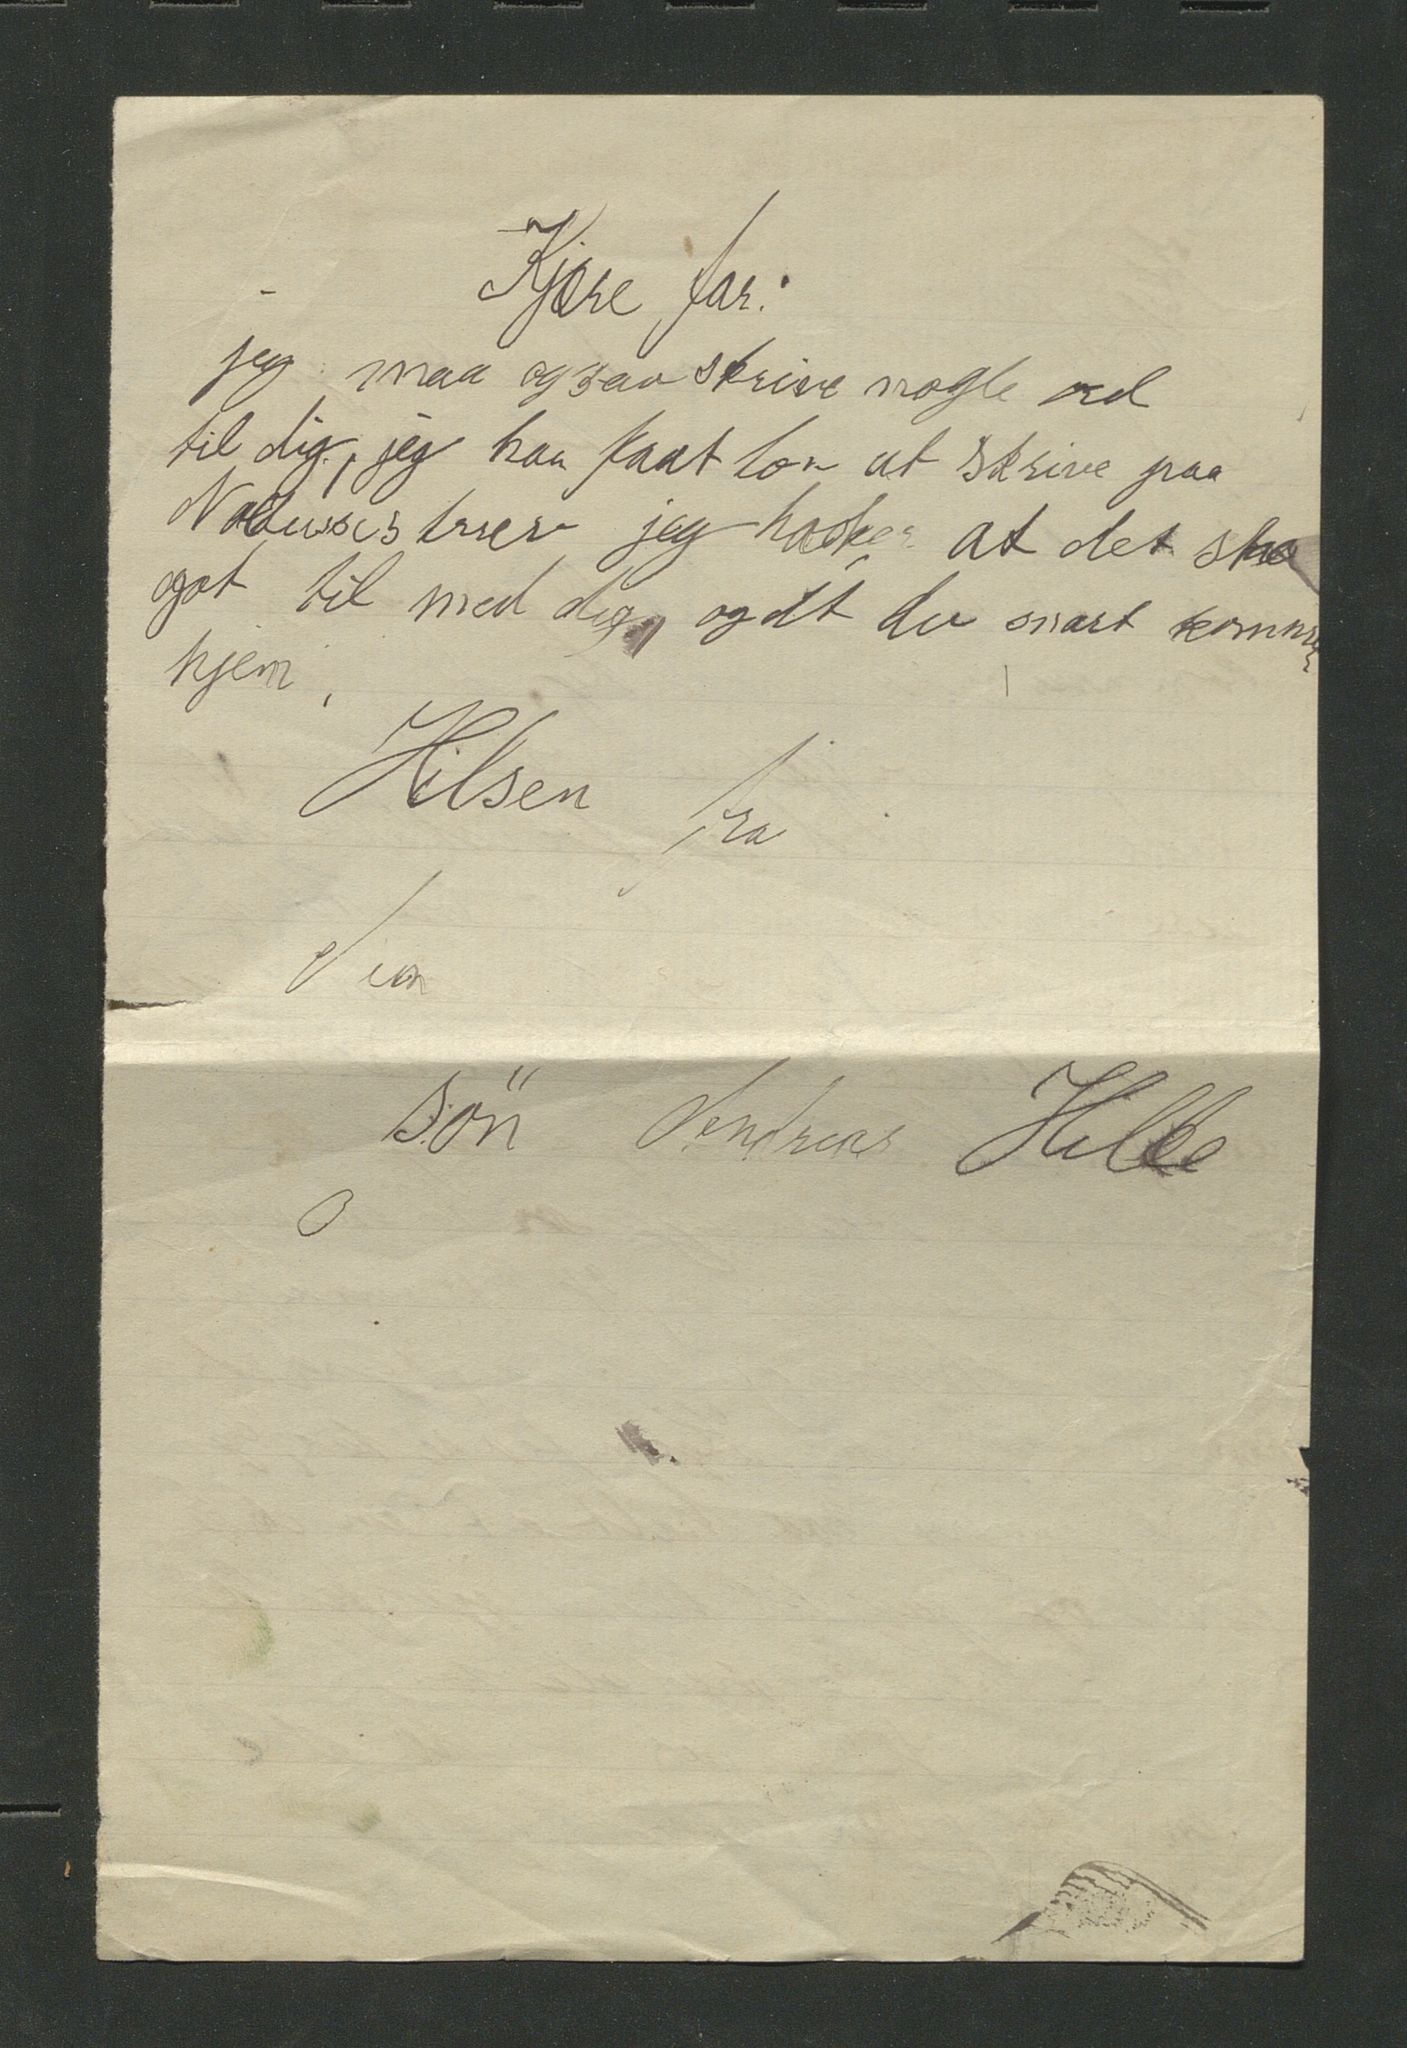 Kjære far.
jeg maa ogsaa skrive nogle ord
til dig, jeg har faat lov at skrive paa
jeg haaber at det ska
got til med dig, og at du snart kommer
hjem,
Hilsen fra
Din
sön Andreas Hille